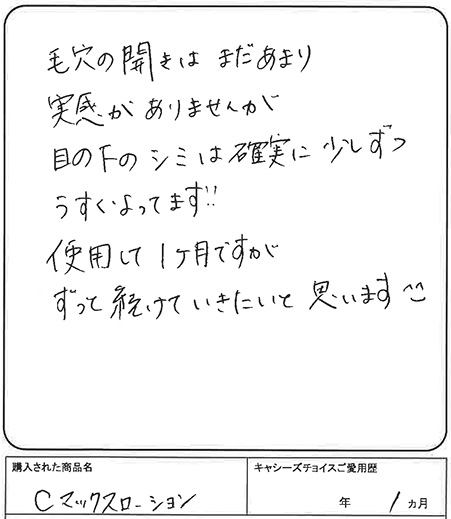 毛穴の開きは まだあまり
実感が ありませんが
目の下の シミは確実に 少しずつ
うすくなってます!!
使用して 1ヶ月ですが
ずっと 続けていきたいと 思います
購入された商品名
キャシーズチョイスご愛用歴
Cマックスローション
年 1 ヵ月